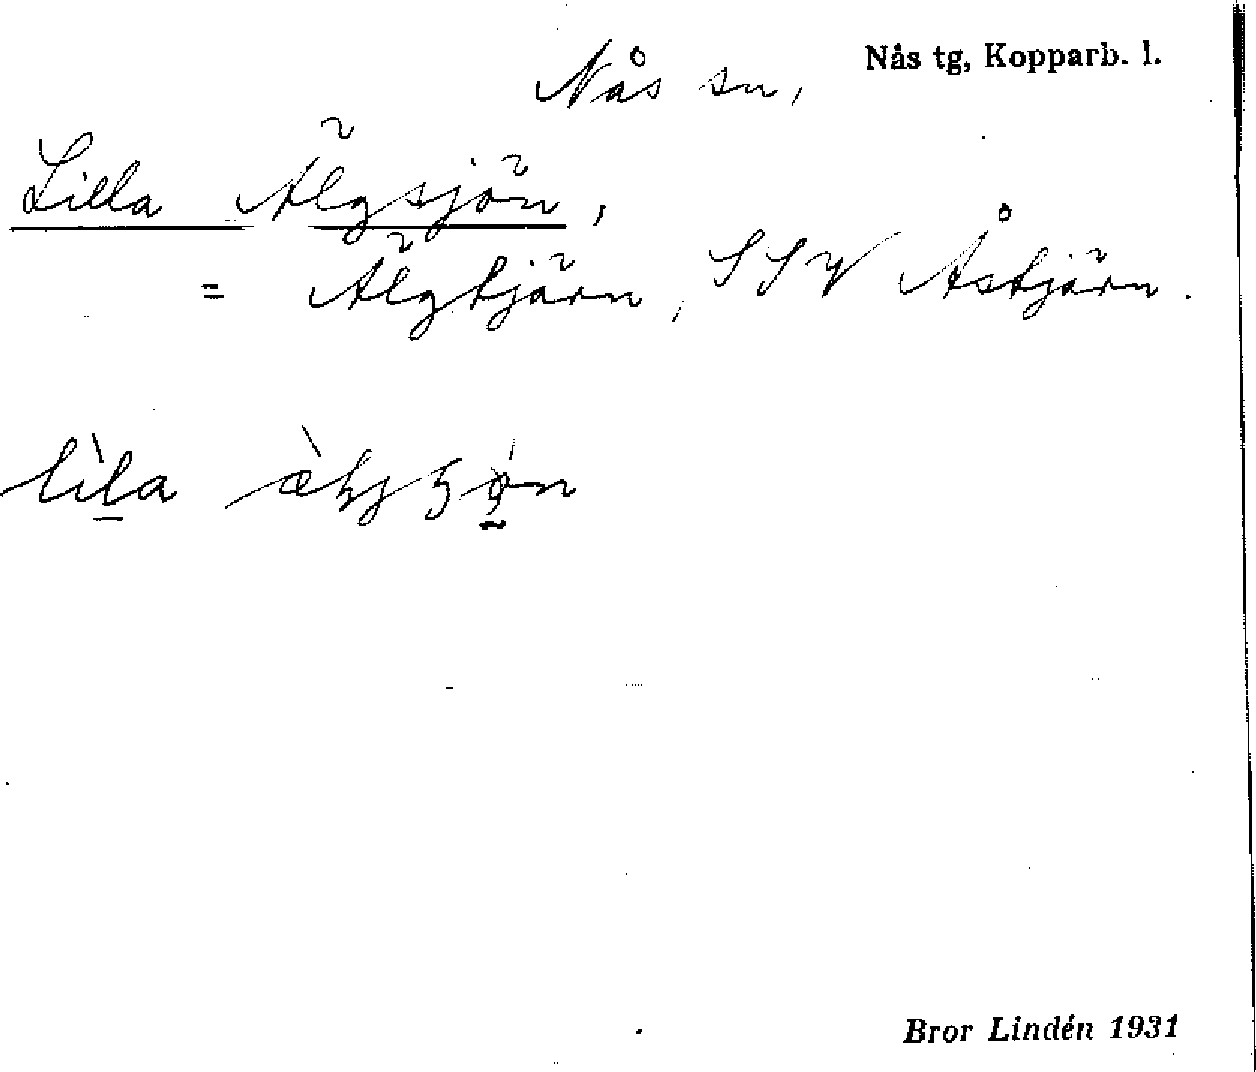 Nås tg, Kopparb. l.
Nås sn,
Lilla Älgsjön,
= Älgtjärn, SSV Åstjärn.
lìla
Bror Lindén 1931